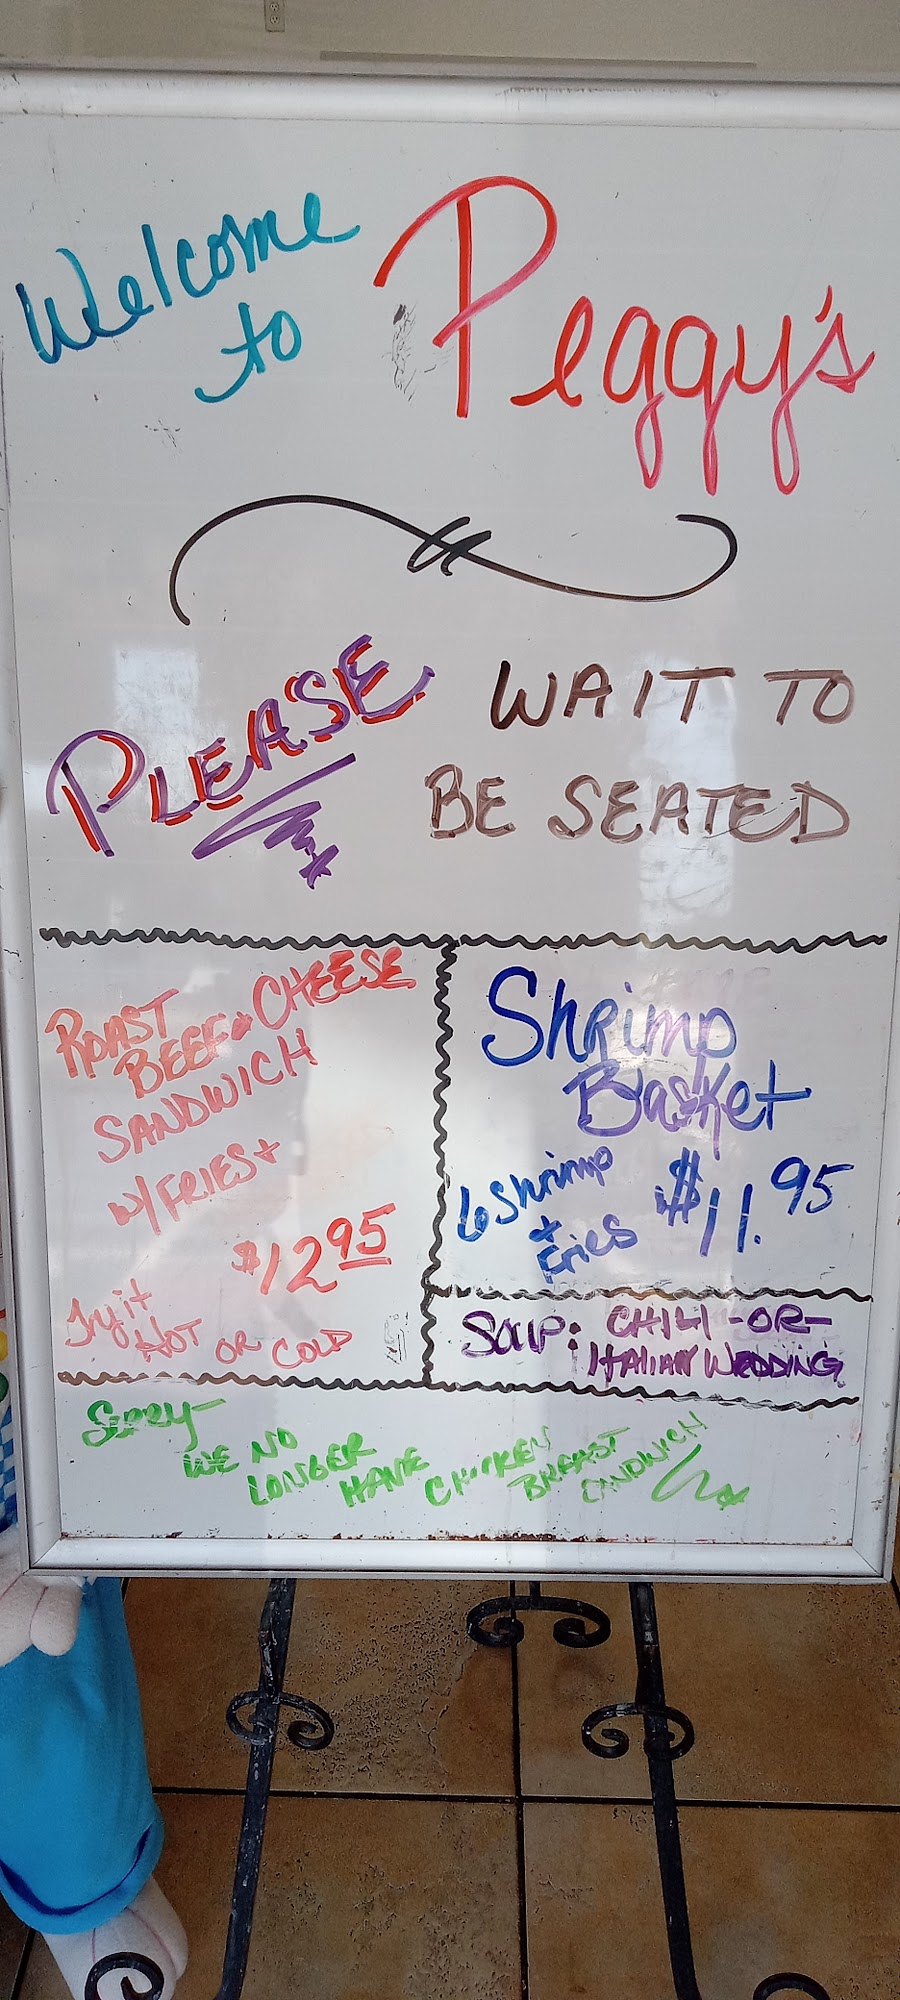 Welcome
to Peggy's
PLEASE WAIT TO
BE SEATED
ROAST
BEEF & CHEESE
SANDWICH
W/ FRIES
$12.95
Try it
HOT OR COLD
Shrimp
Basket
6 Shrimp
+
Fries
$11.95
SOUP: CHILI -OR-
ITALIAN WEDDING
Sorry-
WE NO
LONGER
HAVE CHICKEN
BREAST
SANDWICH